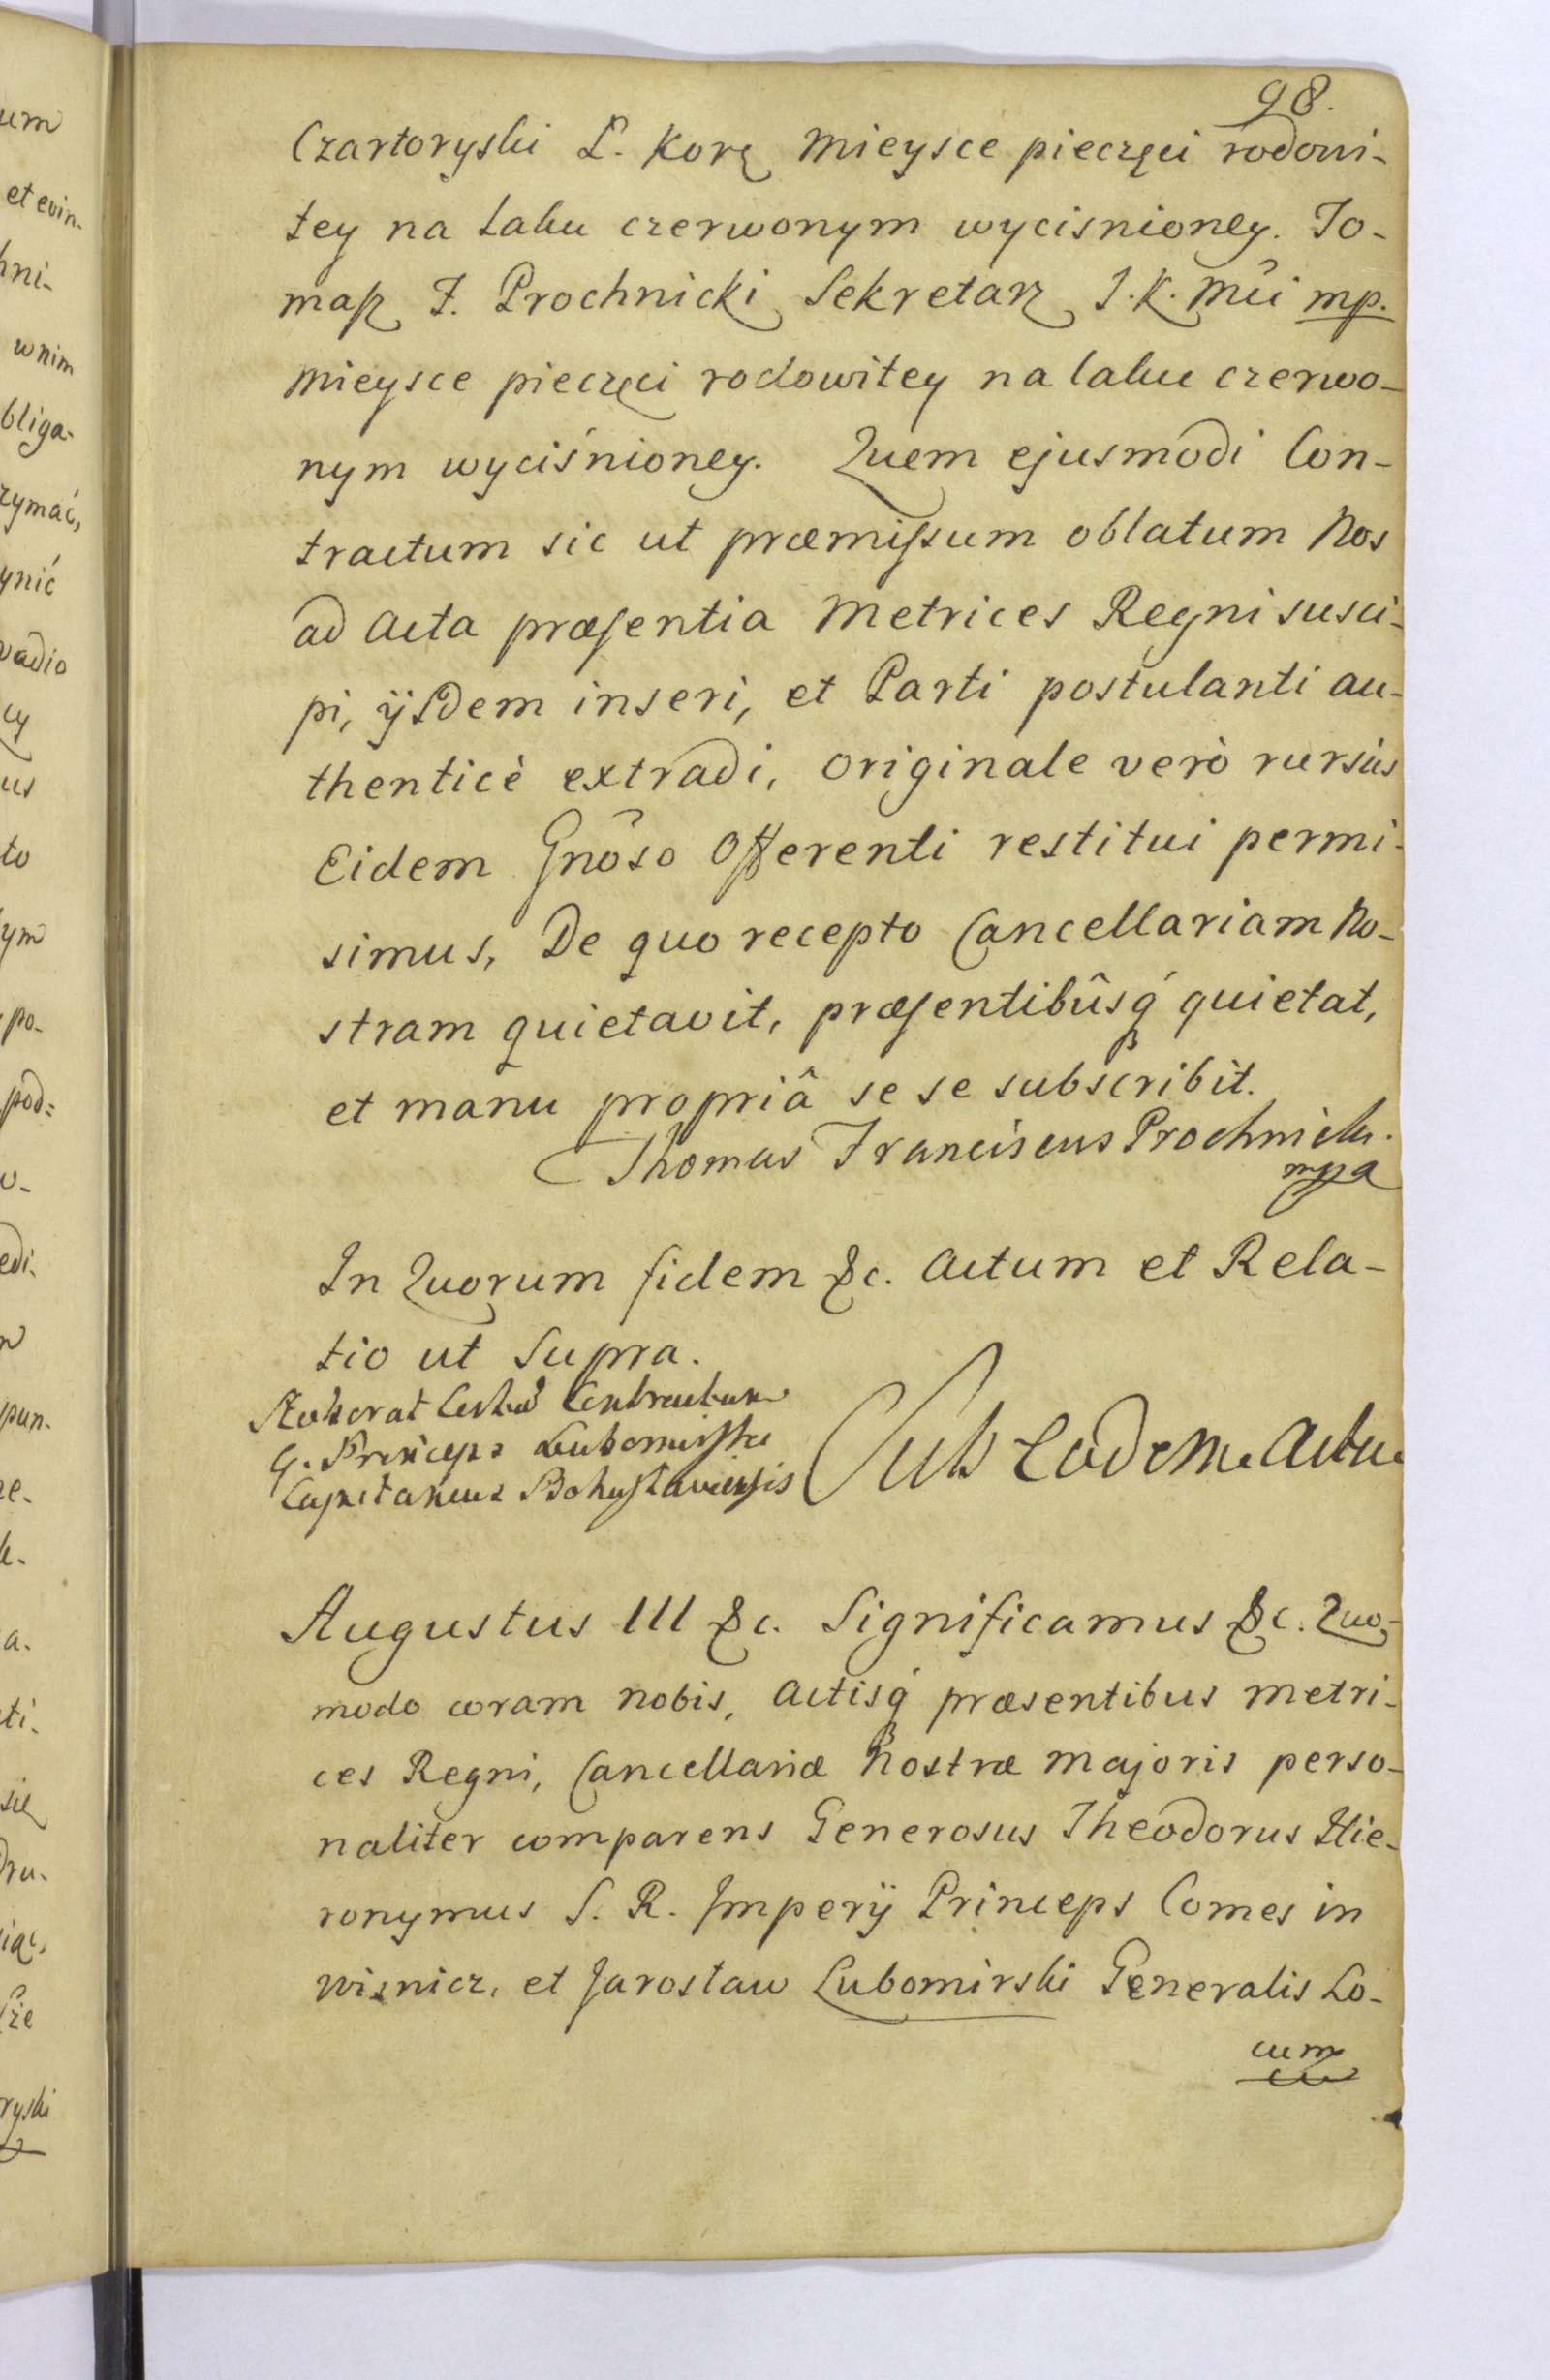 98.
Czartoryski L. Korę Mieysce pieczęci rodowi-
tey na laku czerwonym wycisnioney. To-
masz F. Prochnicki Sekretarz J. K. Mci mp.
Mieysce pieczęci rodowitey na laku czerwo-
nym wyciśnioney. Quem ejusmodi Con-
tractum sic ut præmissum oblatum Nos
ad Acta præsentia Metrices Regni susci-
pi, ijsdem inseri, et Parti postulanti au-
thenticè extradi, originale verò rursùs
Eidem Gnôso Offerenti restitui permi-
simus, De quo recepto Cancellariam No-
stram quietavit, præsentibûsq́ quietat,
et manu propriâ se se subscribit.
Thomas Franciscus Prochnicki.
mppa
In Quorum fidem &c. Actum et Rela-
tio ut Supra.
Contractum
G. Princeps Lubomirski
Capitaneus Bohuslaviensis
Sub Eodem Actu
Augustus III &c. Significamus &c. Quo-
modo coram nobis, Actisq́ præsentibus metri-
ces Regni, Cancellariæ Nostræ Majoris perso-
naliter comparens Generosus Theodorus Hie-
ronymus S. R. Imperij Princeps Comes in
Wisnicz, et Jarosław Lubomirski Generalis Lo-
cum
um
et evin-
hni-
w nim
bliga-
zymać,
ynić
vadio
cy
us
to
ym
po-
pod=
o-
edi-
pun-
ze-
k-
a-
ti-
się
dru-
iąc,
sze
ryski